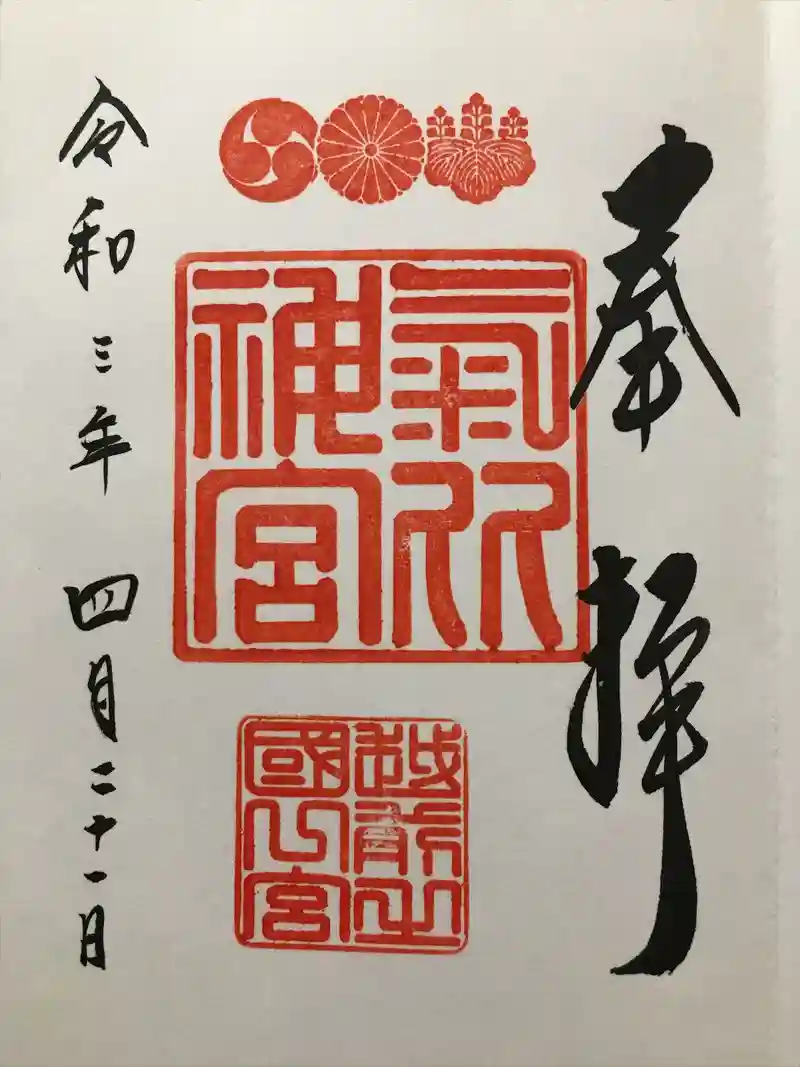 奉拝
氣比
神宮
越前之
國一宮
令和三年四月二十一日